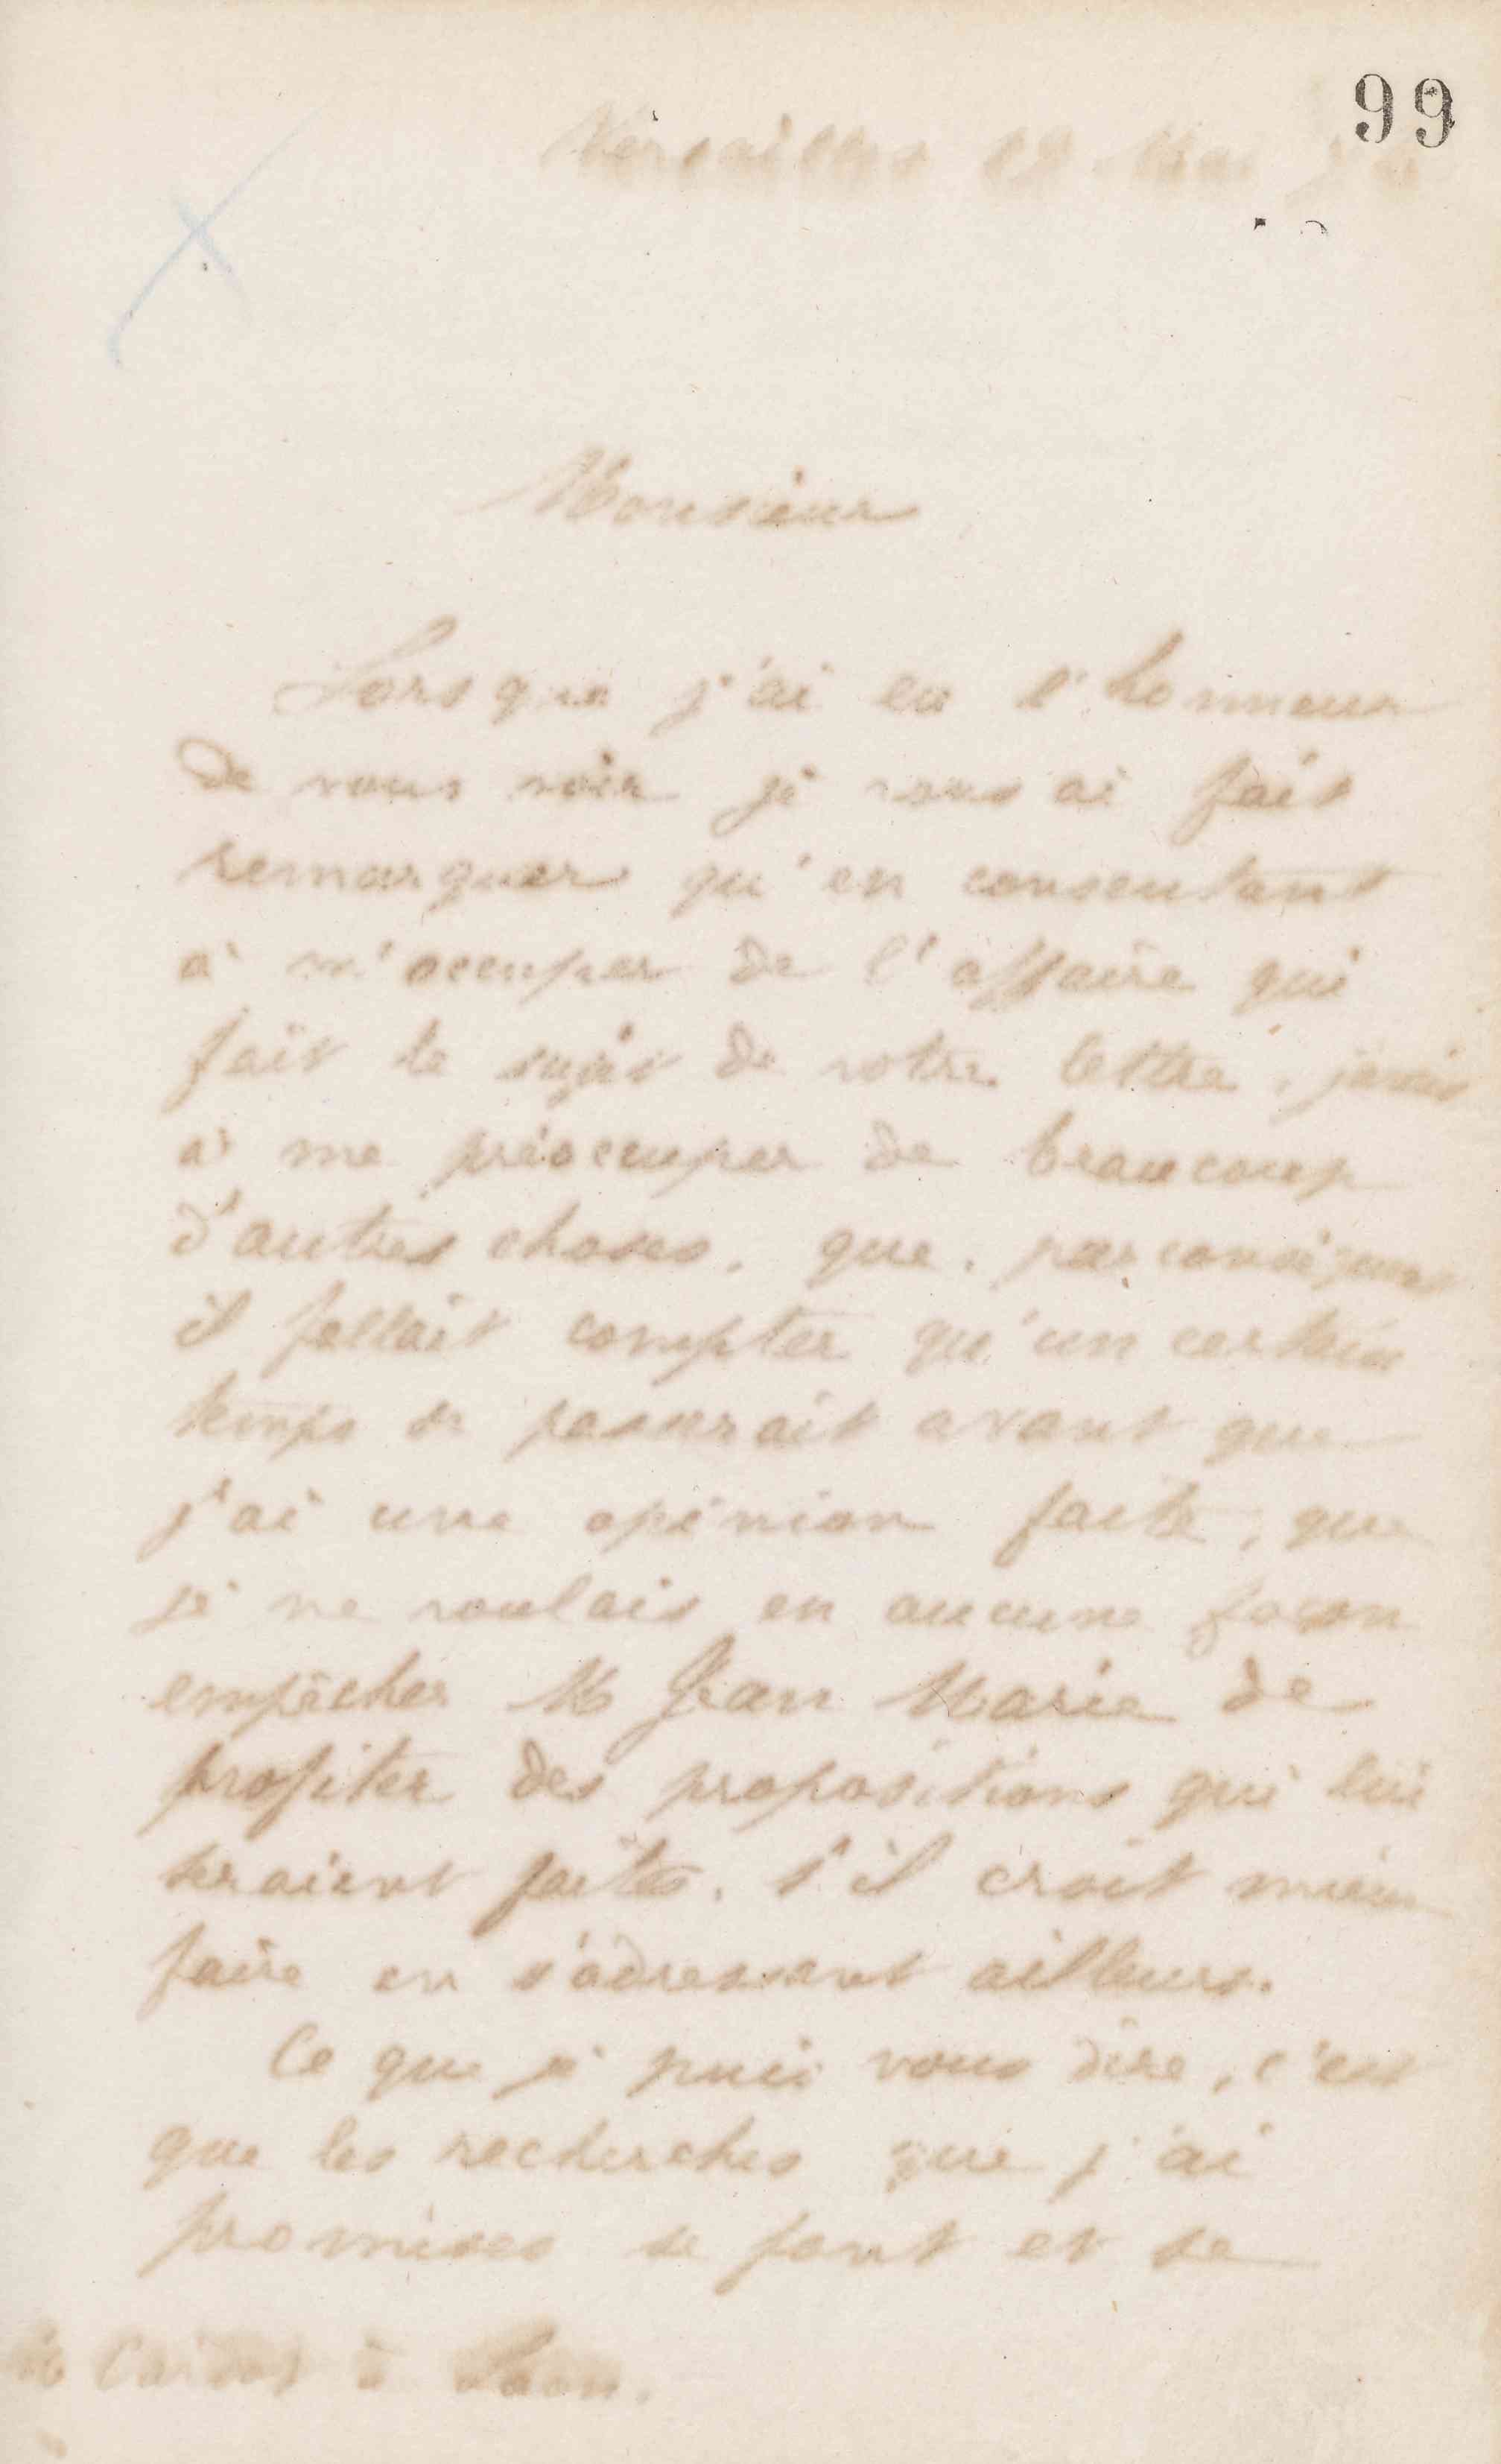 99
Versailles 12 Mai
Monsieur
Lorsque j'ai eu l'honneur
de vous voir je vous ai fait
remarquer qu'en consentant
à m'occuper de l'affaire qui
fait le sujet de votre lettre, j'avais
à me préoccuper de beaucoup
d'autres choses, que, par conséquent
il fallait compter qu'un certain
temps se passerait avant que
j'ai une opinion faite, que
je ne voulais en aucune façon
empêcher M Jean Marie de
profiter des propositions qui lui
seraient faites, s'il croit mieux
faire en s'adressant ailleurs.
Ce que je puis vous dire, c'est
que les recherches que j'ai
promises se font et se
à Laon.